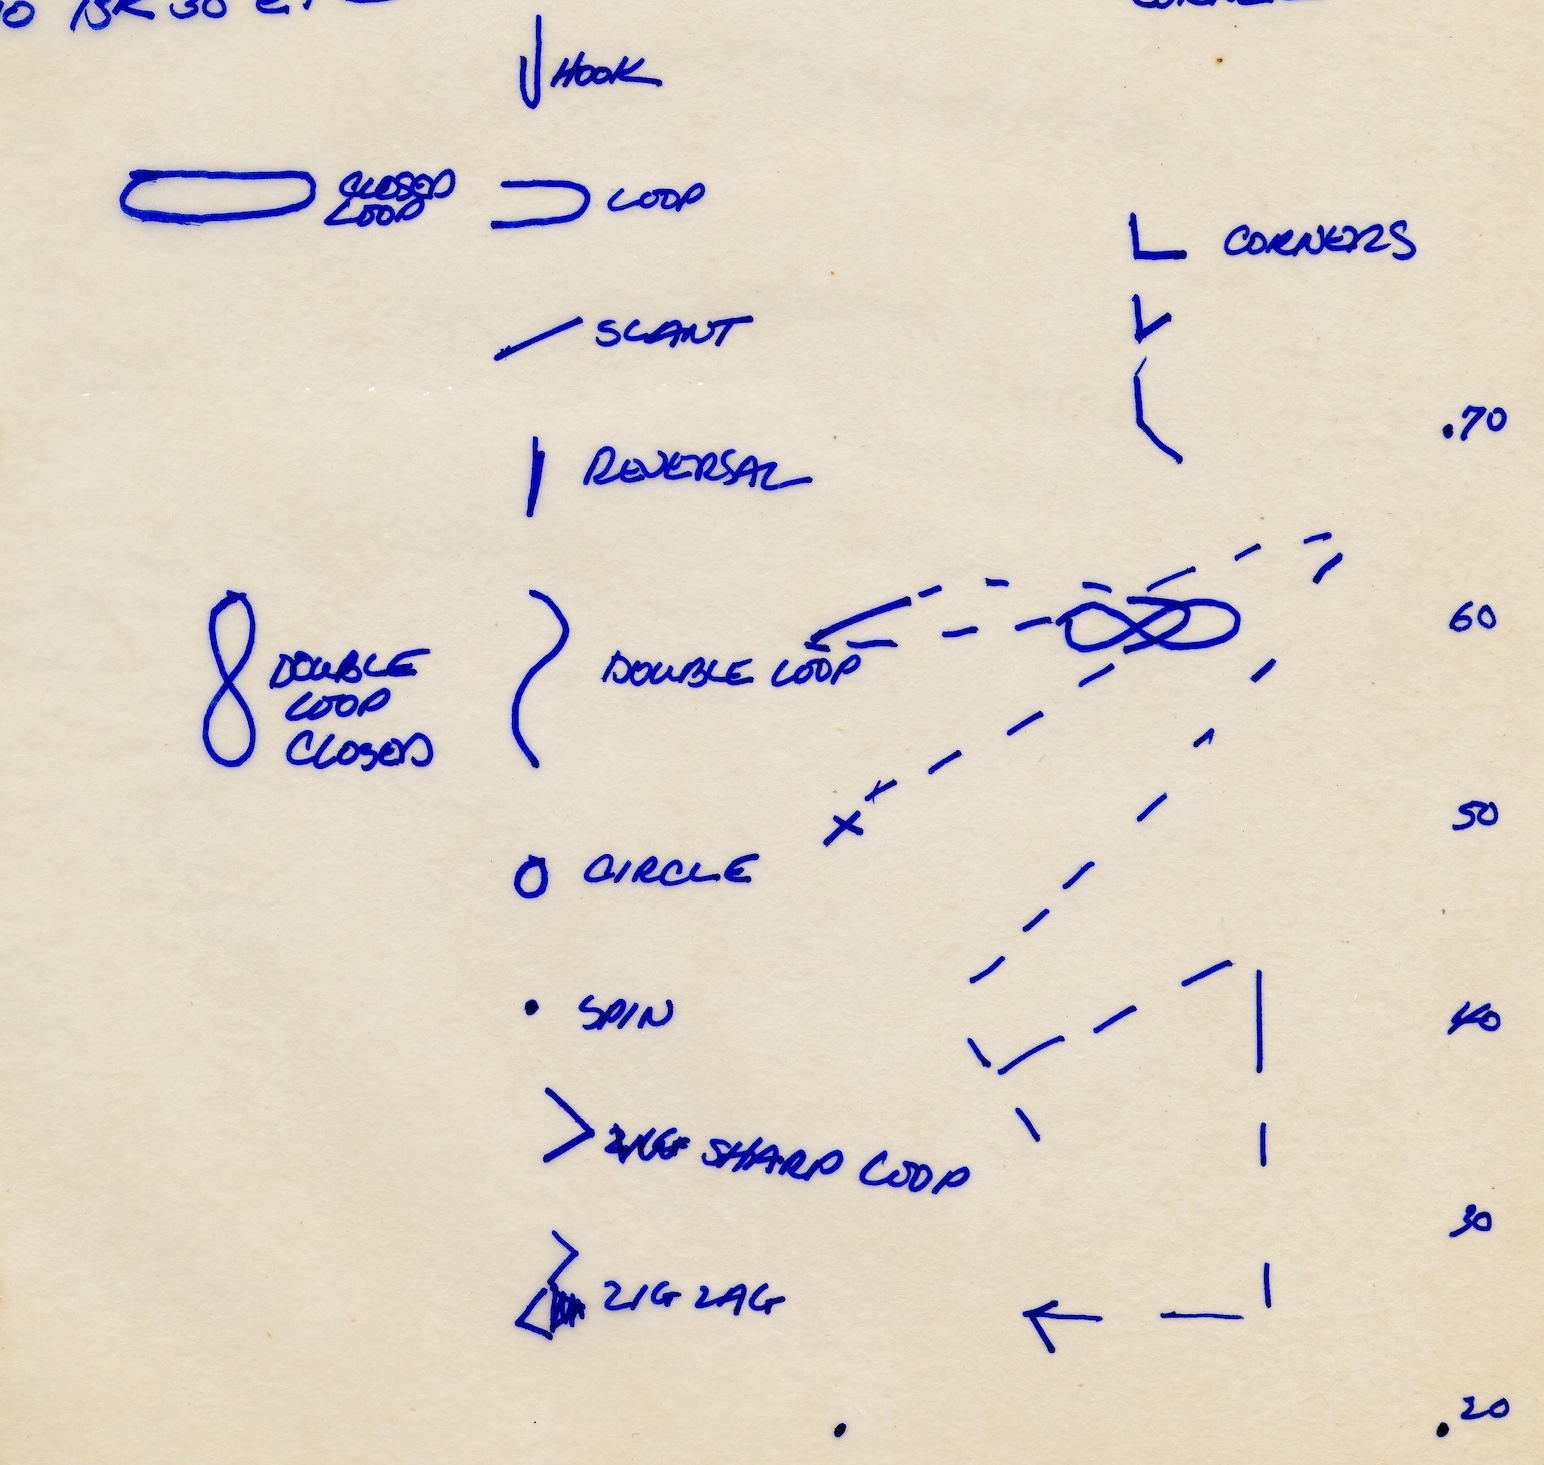 HOOK
CLOSED
LOOP
LOOP
CORNERS
SLANT
.70
REVERSAL
60
DOUBLE
LOOP
CLOSED
DOUBLE LOOP
50
CIRCLE
SPIN
40
SHARP LOOP
30
ZIG ZAG
.20